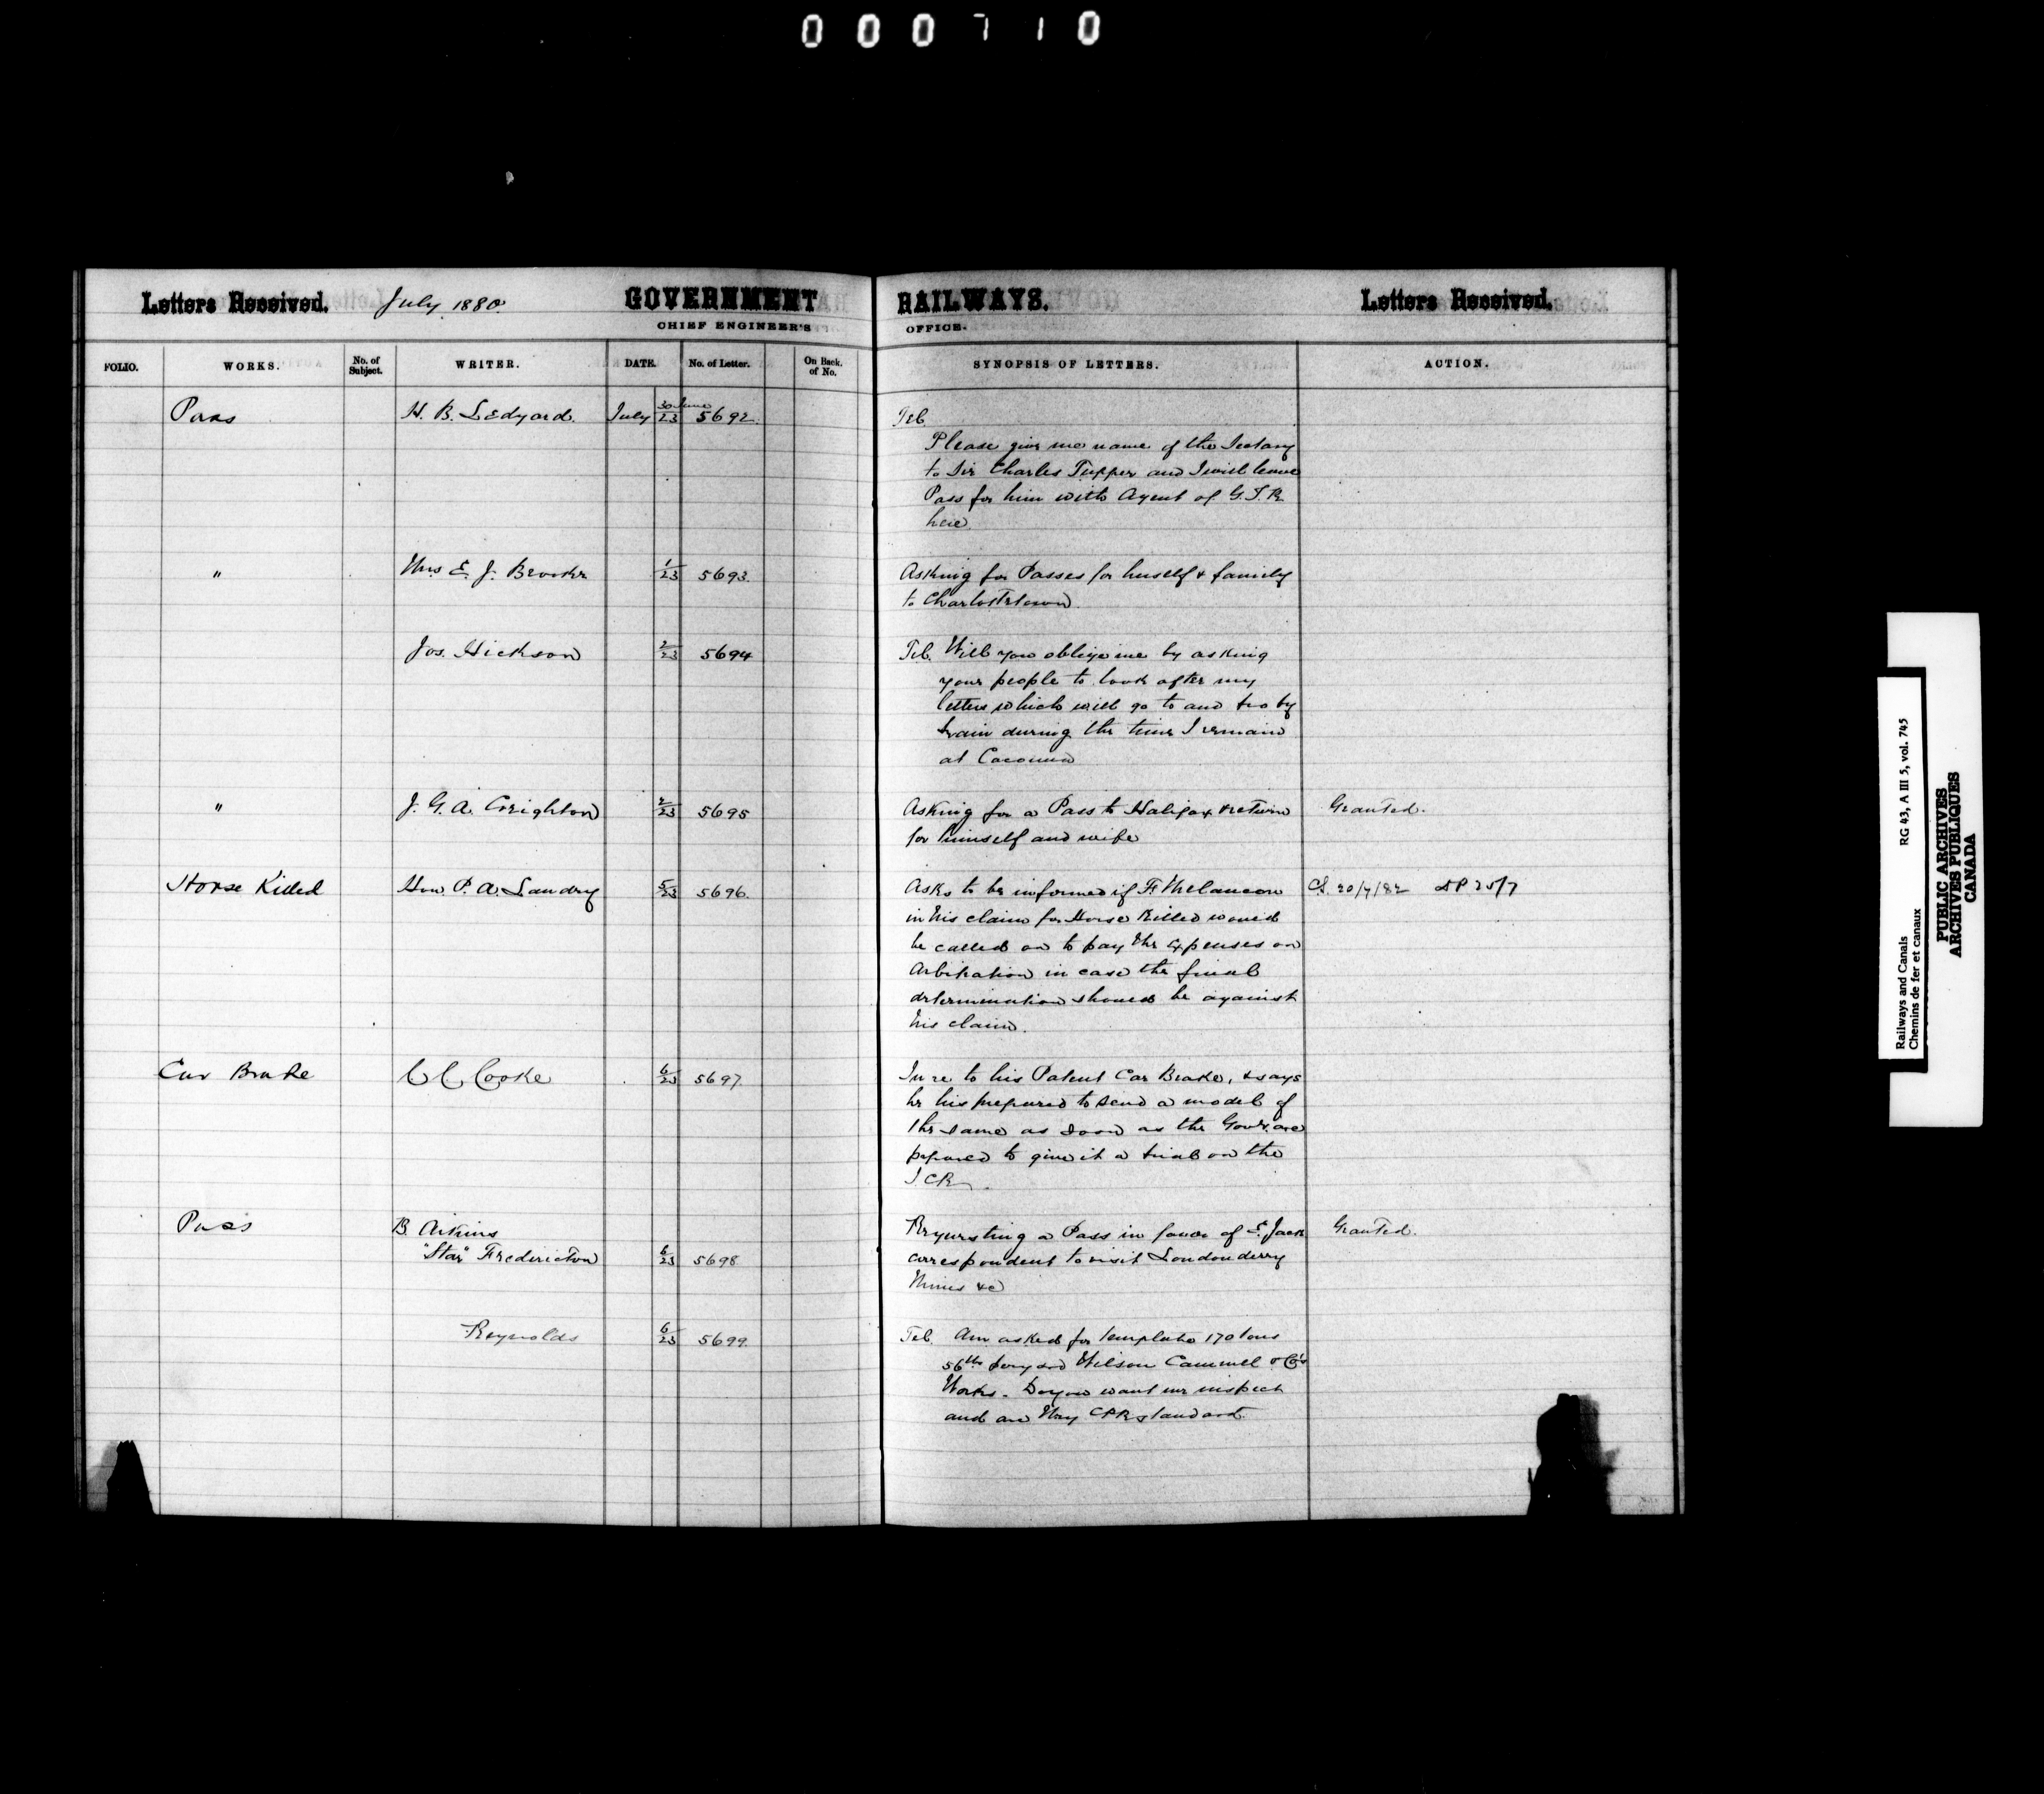 000710
Letters Received. July 1880. GOVERNMENT RAILWAYS. Letters Received.
CHIEF ENGINEER'S OFFICE.
FOLIO. WORKS. No. of Subject. WRITER. DATE. No. of Letter. On Back of No. SYNOPSIS OF LETTERS. ACTION.
Pass H. B. Ledyard. July 30 June/23 5692. Tel.
Please give me name of the Sectary
to Sir Charles Tupper and I will leave
Pass for him with Agent of G.T.R.
here
" Mrs E. J. Brooks 1/23 5693. Asking for Passes for herself & family
to Charlottetown.
Jos. Hickson 2/23 5694 Tel. Will you oblige me by asking
your people to look after my
letters which will go to and fro by
train during the time I remain
at Cacouna
" J. G. A. Creighton 2/23 5695 Asking for a Pass to Halifax & return Granted.
for himself and wife
Horse Killed Hon. P. A. Landry 5/23 5696. Asks to be informed if F. Melancon 20/7/82 25/7
in his claim for Horse Killed would
be called on to pay the expenses on
Arbitration in case the final
determination should be against
his claim.
Car Brake C C Cooke 6/23 5697. In re to his Patent Car Brake, & says
he his prepared to send a model of
the same as soon as the Govt. are
prepared to give it a trial on the
I.C.R.
Pass B. Atkins Requesting a Pass in favor of E. Jack Granted.
"Star" Fredericton 6/23 5698 correspondent to visit Londonderry
Mines &c
Reynolds 6/23 5699. Tel. Am asked for template 170 tons
56 lbs per yard Wilson Cammell & Co's
Works. Do you want me inspect
and are they CPR standard.
Railways and Canals RG 43, A III 5, vol. 745
Chemins de fer et canaux
PUBLIC ARCHIVES
ARCHIVES PUBLIQUES
CANADA